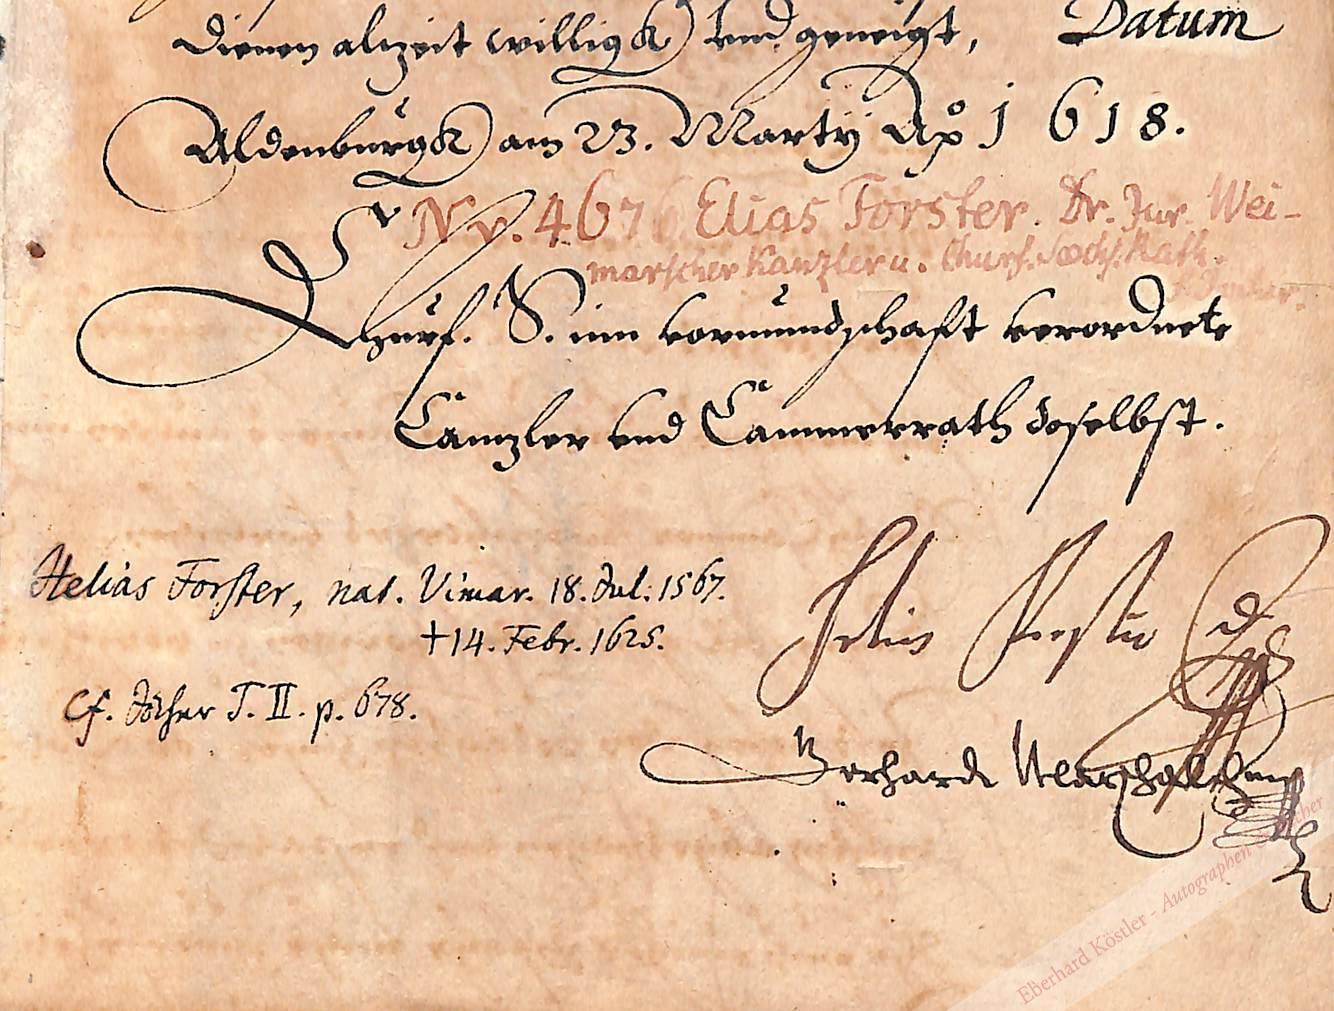 dienen alzeit willigk vnd geneigt, Datum
Aldenburgk am 23. Martij Ao 1618.
Nr. 4676 Elias Forster. Dr. Jur. Wei-
marscher Kanzler u. Churf. Sächs. Rath.
Churf. S. inn vormundschaft verordnete
Cantzler vnd Cammerrath doselbst.
Helias Forster, nat. Vimar. 18. Jul: 1567.
†14. Febr. 1625.
Cf. Jöcher T. II. p. 678.
Helias Forster D
Gerhardt
Eberhard Köstler - Autographen